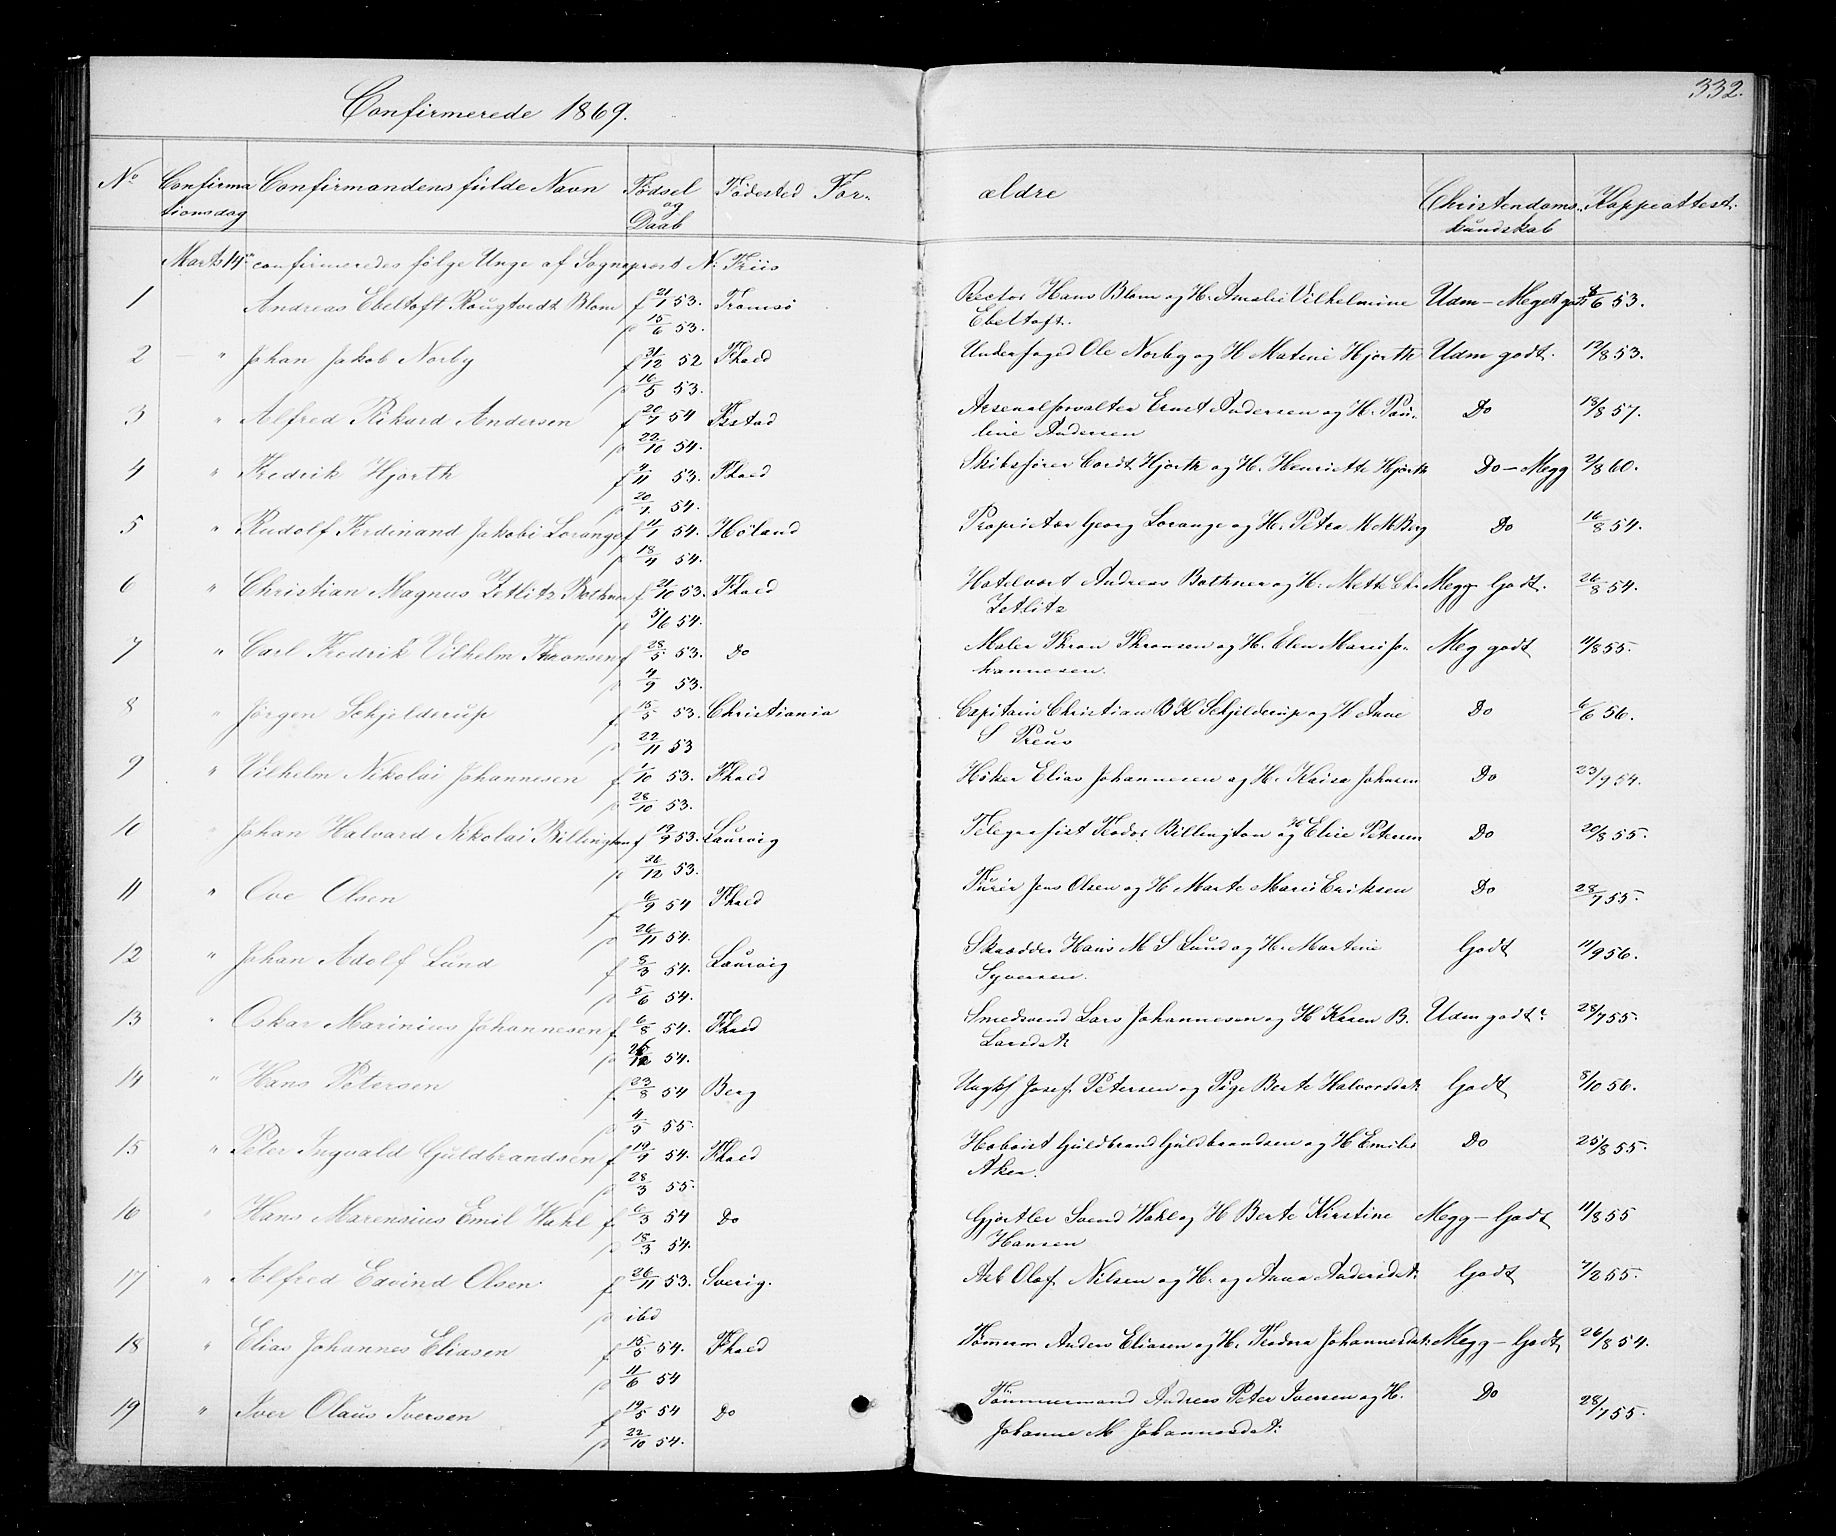 332.
Confirmerede 1869.
No Confirma Confirmandens fulde Navn Fødsel Fødested For- ældre Christendoms Koppeattest.
tionsdag og kundskab
Daab
Marts 14 confirmeredes følge Unge af Sogneprest N. Friis
1 Andreas Ebeltoft Rougtvedt Blom f 21/1 53. Tromsø Rector Hans Blom og H. Amalie Vilhelmine Udm - Meget godt 8/6 53.
p 15/6 53. Ebeltoft.
2 " Johan Jakob Norby f 31/12 52 Fhald Underfoged Ole Norby og H Matine Hjorth Udm godt. 12/8 53.
p 16/5 53.
3 " Alfred Rikard Andersen f 20/7 54 Fstad Arsenalforvalter Ernst Andersen og H. Pau- Do 18/8 57.
p 22/10 54. line Andersen
4 " Fredrik Hjorth f 9/11 53. Fhald Skibsfører Cordt Hjorth og H. Henriette Hjorth Do - Megg 2/8 60.
p 20/1 54.
5 " Rudolf Ferdinand Jakobi Lorange f 11/1 54. Høland Proprietær Georg Lorange og H. Petra M M Berg Do 16/8 54.
p 18/4 54.
6 " Christian Magnus Zetlitz Bothner f 21/10 53. Fhald Hotelvært Andreas Bothner og H. Mette Chr Megg Godt. 26/8 54.
p 5/6 54. Zetlitz
7 " Carl Fredrik Vilhelm Thronsen f 28/5 53. Do Maler Thron Thronsen og H. Elen Marie Jo- Meg godt 11/8 55.
p 4/9 53. hannesen.
8 " Jørgen Schjelderup f 15/5 53. Christiania Capitain Christian B K Schjelderup og H Anne Do 6/6 56.
p 22/11 53 S Preus
9 " Vilhelm Nikolai Johannesen f 1/10 53. Fhald Høker Elias Johannesen og H. Kaisa Johnsen Do 23/9 54.
p 28/10 53.
10 " Johan Halvard Nikolai Billington f 19/9 53. Laurvig Telegrafist Teodor Billington og H Elise Petersen Do 20/8 55.
p 26/12 53.
11 " Ove Olsen f 6/9 54 Fhald Turer Jens Olsen og H Marte Marie Eriksen Do 28/7 55.
p 26/11 54.
12 " Johan Adolf Lund f 8/3 54. Laurvig Skrædder Hans M S Lund og H. Martine Godt 11/9 56.
p 5/6 54. Syversen.
13 " Oskar Marinius Johannesen f 6/8 54. Fhald Smedsvend Lars Johannesen og H Karen B. Udm godt 28/7 55.
p 26/12 54. Larsdt:
14 " Hans Petersen f 23/8 54 Berg Ungk Josef Petersen og Pige Berte Halvorsdt: Godt 8/10 56.
p 4/5 55.
15 " Peter Ingvald Guldbrandsen f 19/9 54. Fhald Hoboist Guldbrand Guldbrandsen og H Emilie Do 25/8 55.
p 28/3 55. Aker.
16 " Hans Marensius Emil Wahl f 6/3 54 Do Gjørtler Svend Wahl og H Berte Kirstine Megg - Godt 11/8 55
p 18/3 54. Hansen
17 " Alfred Edvind Olsen f 26/11 53. Sverig. Arb Olaf Nilsen og H. og Anna Andersdt: Godt 7/2 55.
p ibd
18 " Elias Johannes Eliasen f 15/5 54. Fhald Tømerm Anders Eliasen og H. Teodora Johannesdt: Megg - Godt 26/8 54.
p 11/6 54
19 " Iver Olaus Iversen f 19/5 54 Do Tømmermand Andreas Peter Iversen og H. Do 28/7 55.
p 22/10 54. Johanne M Johannesdt: